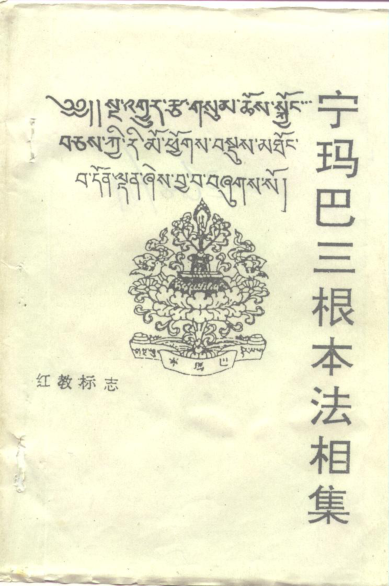 ༄༅། །སྔ་འགྱུར་རྩ་གསུམ་ཆོས་སྐྱོང་
བཅས་ཀྱི་རི་མོ་ཕྱོགས་བསྡུས་མཐོང་
བ་དོན་ལྡན་ཞེས་བྱ་བ་བཞུགས་སོ།
宁玛巴三根本法相集
红教标志